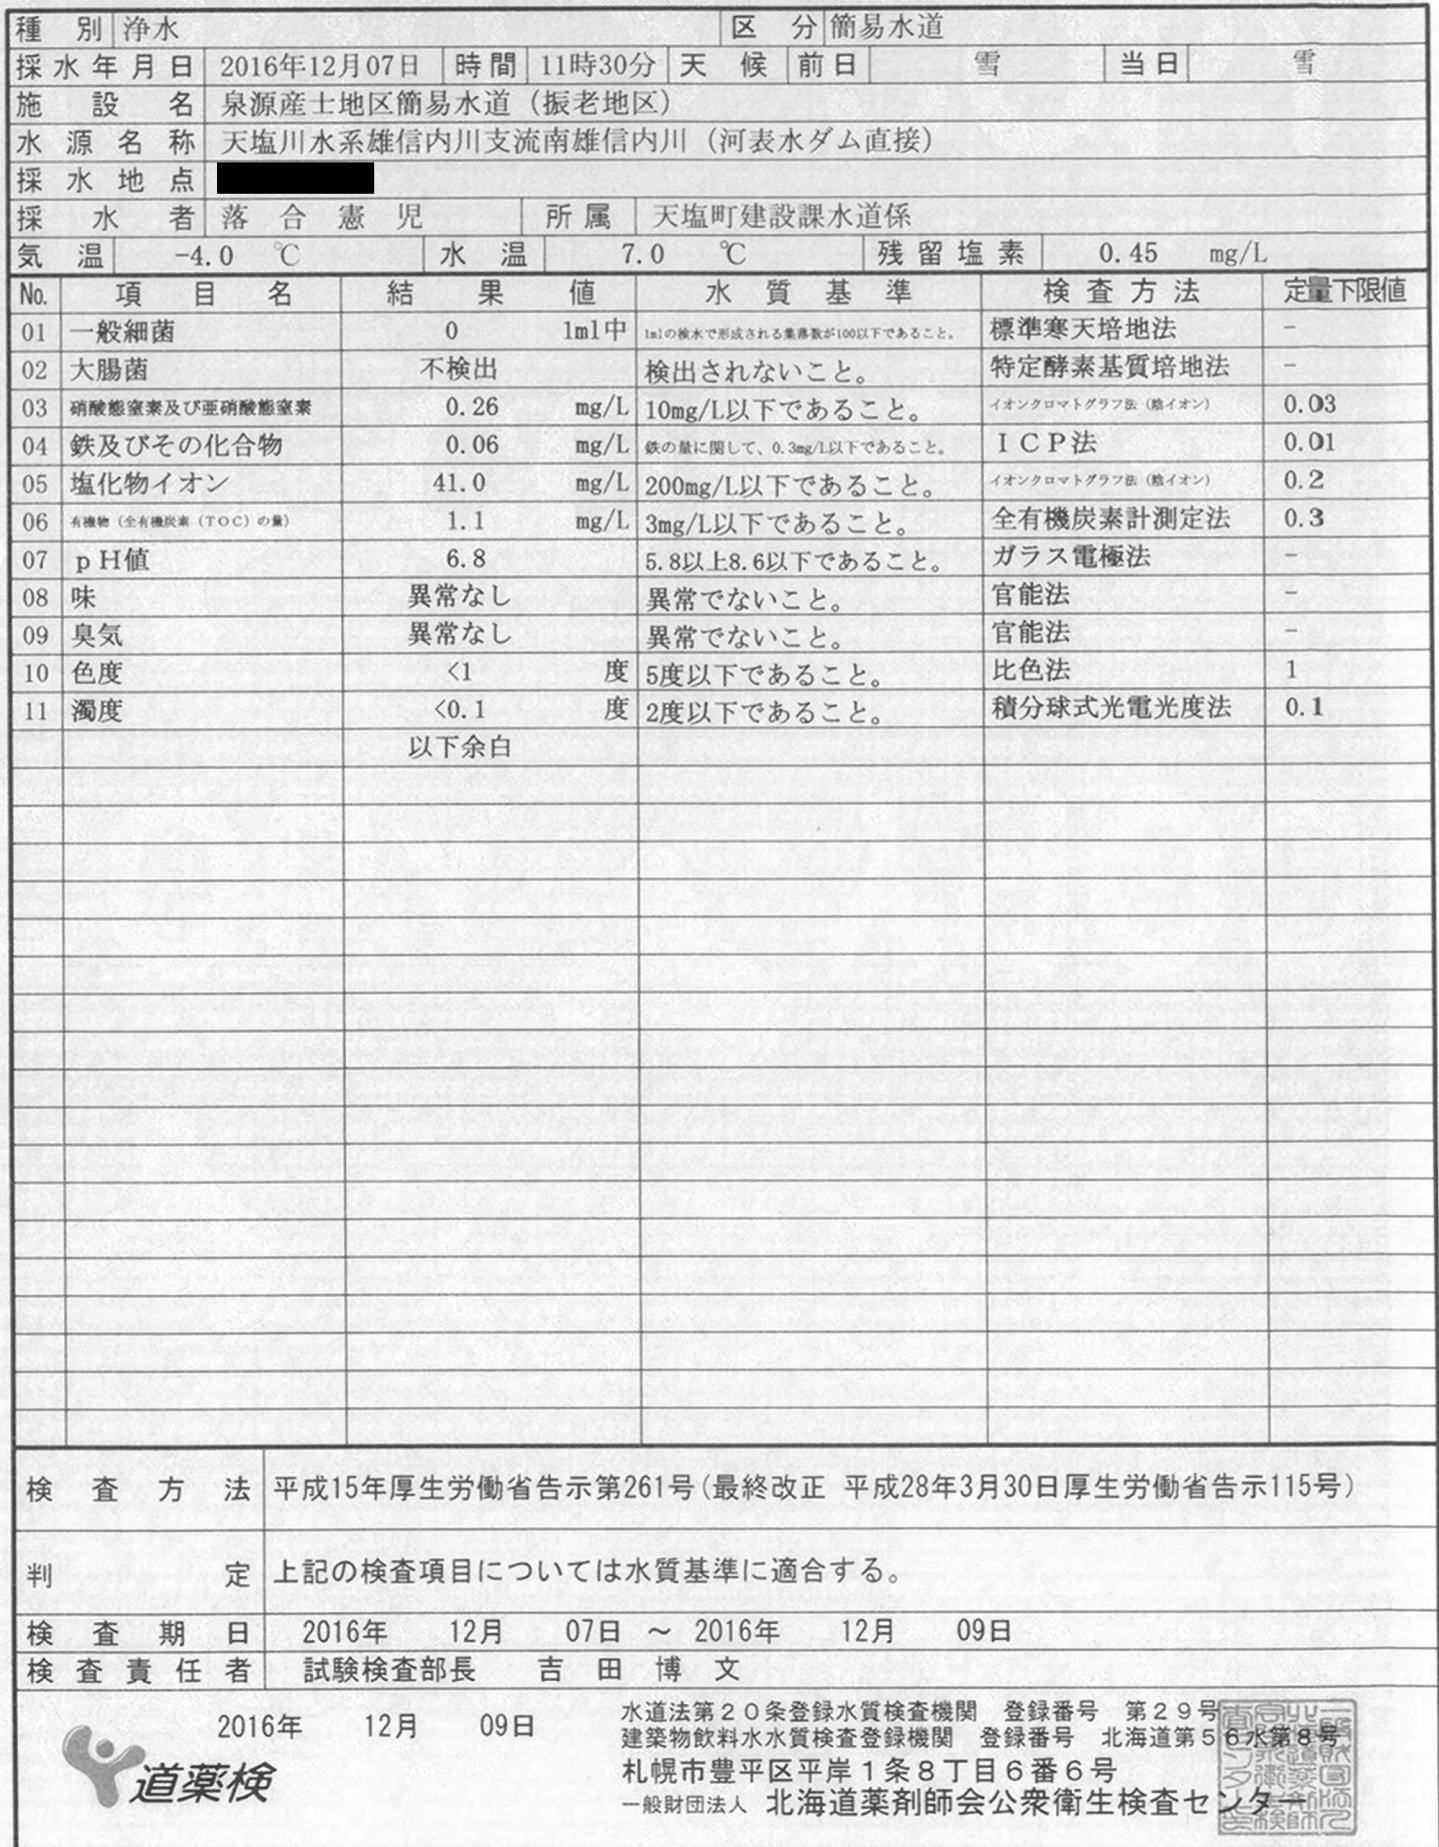 種別 浄水 区分 簡易水道
採水年月日 2016年12月07日 時間 11時30分 天候 前日 雪 当日 雪
施設名 泉源産士地区簡易水道（振老地区）
水源名称 天塩川水系雄信内川支流南雄信内川（河表水ダム直接）
採水地点
採水者 落合憲児 所属 天塩町建設課水道係
気温 -4.0 ℃ 水温 7.0 ℃ 残留塩素 0.45 mg/L
No. 項目名 結果値 水質基準 検査方法 定量下限値
01 一般細菌 0 1ml中 1mlの検水で形成される集落数が100以下であること。 標準寒天培地法 -
02 大腸菌 不検出 検出されないこと。 特定酵素基質培地法 -
03 硝酸態窒素及び亜硝酸態窒素 0.26 mg/L 10mg/L以下であること。 イオンクロマトグラフ法（陰イオン） 0.03
04 鉄及びその化合物 0.06 mg/L 鉄の量に関して、0.3mg/L以下であること。 ＩＣＰ法 0.01
05 塩化物イオン 41.0 mg/L 200mg/L以下であること。 イオンクロマトグラフ法（陰イオン） 0.2
06 有機物（全有機炭素（ＴＯＣ）の量） 1.1 mg/L 3mg/L以下であること。 全有機炭素計測定法 0.3
07 ｐＨ値 6.8 5.8以上8.6以下であること。 ガラス電極法 -
08 味 異常なし 異常でないこと。 官能法 -
09 臭気 異常なし 異常でないこと。 官能法 -
10 色度 <1 度 5度以下であること。 比色法 1
11 濁度 <0.1 度 2度以下であること。 積分球式光電光度法 0.1
以下余白
検査方法 平成15年厚生労働省告示第261号(最終改正 平成28年3月30日厚生労働省告示115号)
判定 上記の検査項目については水質基準に適合する。
検査期日 2016年 12月 07日 ～ 2016年 12月 09日
検査責任者 試験検査部長 吉田博文
2016年 12月 09日
道薬検
水道法第２０条登録水質検査機関 登録番号 第２９号
建築物飲料水水質検査登録機関 登録番号 北海道第５６水第８号
札幌市豊平区平岸１条８丁目６番６号
一般財団法人 北海道薬剤師会公衆衛生検査センター